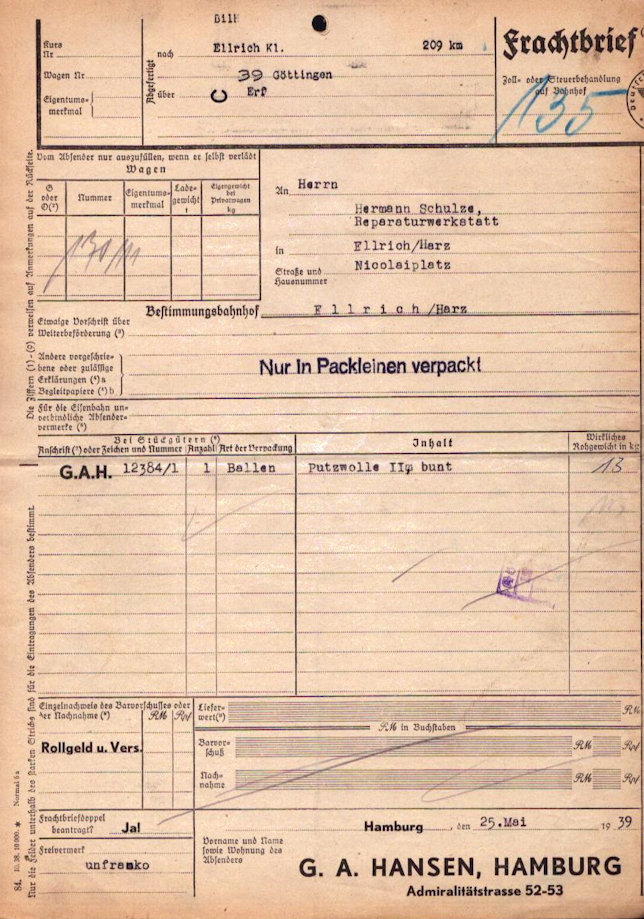 Bilh
Kurs
Nr
nach
Ellrich Kl.
209 km
Frachtbrief
Wagen Nr
Abgefertigt
39 Göttingen
Zoll- oder Steuerbehandlung
auf Bahnhof
Eigentums-
merkmal
über
C
Erf
135
Vom Absender nur auszufüllen, wenn er selbst verlädt
Wagen
G
oder
O(²)
Nummer
Eigentums-
merkmal
Lade-
gewicht
t
Eigengewicht
bei
Privatwagen
kg
An
Herrn
Hermann Schulze,
Reparaturwerkstatt
in
Ellrich/Harz
Straße und
Hausnummer
Nicolaiplatz
Bestimmungsbahnhof
Ellrich/Harz
Etwaige Vorschrift über
Weiterbeförderung (³)
Andere vorgeschrie-
bene oder zulässige
Erklärungen (⁴)a
Begleitpapiere (⁴)b
Nur In Packleinen verpackt
Für die Eisenbahn un-
verbindliche Absender-
vermerke (⁵)
Die Ziffern (1)-(9) verweisen auf Anmerkungen auf der Rückseite.
Bei Stückgütern (⁶)
Anschrift(⁷) oder Zeichen und Nummer
Anzahl
Art der Verpackung
Inhalt
Wirkliches
Rohgewicht in kg
G.A.H. 12384/1
1
Ballen
Putzwolle IIm bunt
13
Nur die Felder unterhalb des starken Strichs sind für die Eintragungen des Absenders bestimmt.
Einzelnachweis des Barvorschusses oder
der Nachnahme (⁸)
RM
Rpf
Liefer-
wert(⁹)
RM
RM in Buchstaben
Rollgeld u. Vers.
Barvor-
schuß
RM
Rpf
Nach-
nahme
RM
Rpf
Frachtbriefdoppel
beantragt?
Ja!
Hamburg, den 25.Mai 1939
Freivermerk
unfranko
Vorname und Name
sowie Wohnung des
Absenders
G. A. HANSEN, HAMBURG
Admiralitätstrasse 52-53
84. 10. 38. 10 000. * Normal 6 a